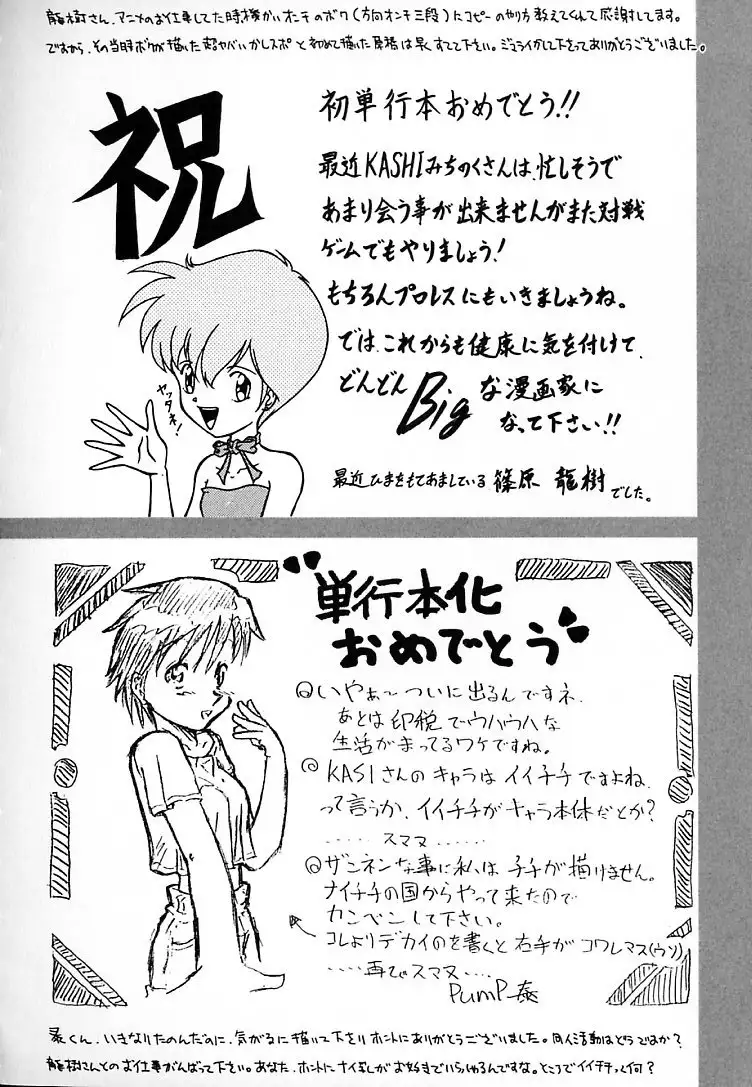 龍樹さん、アニメのお仕事してた時機かいオンチのボク(方向オンチ三段)にコピーのやり方教えてくれて感謝してます。
ですから、その当時ボクが描いた超ヤバいかしスポと初めて描いた原稿は早くすてて下さい。ジュライかして下さってありがとうございました。
祝
初単行本おめでとう!!
最近KASHIみちのくさんは、忙しそうで
あまり会う事が出来ませんがまた対戦
ゲームでもやりましょう!
もちろんプロレスにもいきましょうね。
では、これからも健康に気を付けて、
どんどんBigな漫画家に
なって下さい!!
ヤッタネ!
最近ひまをもてあましている篠原 龍樹でした。
単行本化
おめでとう
いやぁ〜ついに出るんですネ.
あとは印税でウハウハな
生活がまってるワケですね。
KASIさんのキャラはイイチチですよね.
って言うか、イイチチがキャラ本体だとか?
......スマヌ......
ザンネンな事に私は チチが描けません。
ナイチチの国からやって来たので
カンベンして下さい。
コレよりデカイのを書くと右手がコワレマス(ウソ)
....再びスマヌ....
PumP
くん、いきなりたのんだのに、気がるに描いて下さりホントにありがとうございました。同人活動はどうですか?
龍樹さんとのお仕事がんばって下さい。あなた、ホントにナイ乳しがお好きでいらっしゃるんですな。ところでイイチチって何?